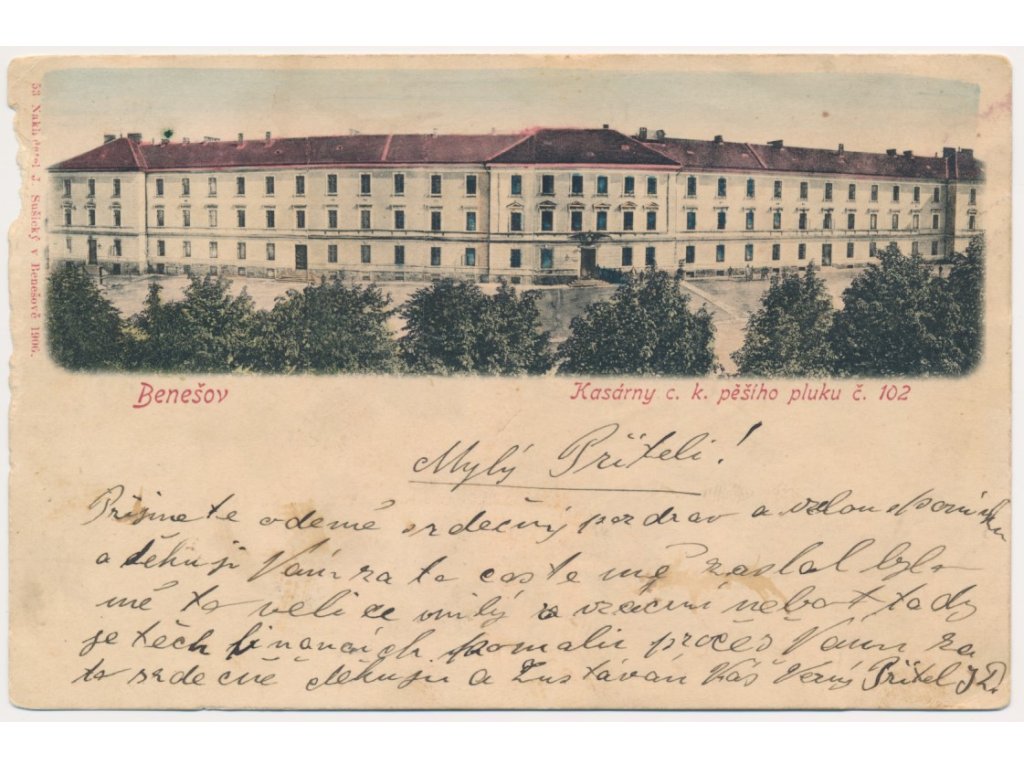 53 Nakl. Josef J. Sušický v Benešově 1906.
Benešov
Kasárny c. k. pěšího pluku č. 102
Mylý Příteli!
Přijmete odemě srdečný pozdrav a
a děkuji Vám za to co ste mě zaslal bylo
mé to velice milý a vzácní nebot tady
je těch financích pomalu pročež Vám za
to srdečně děkuju a Zustávám Váš Verný Přítel J D.